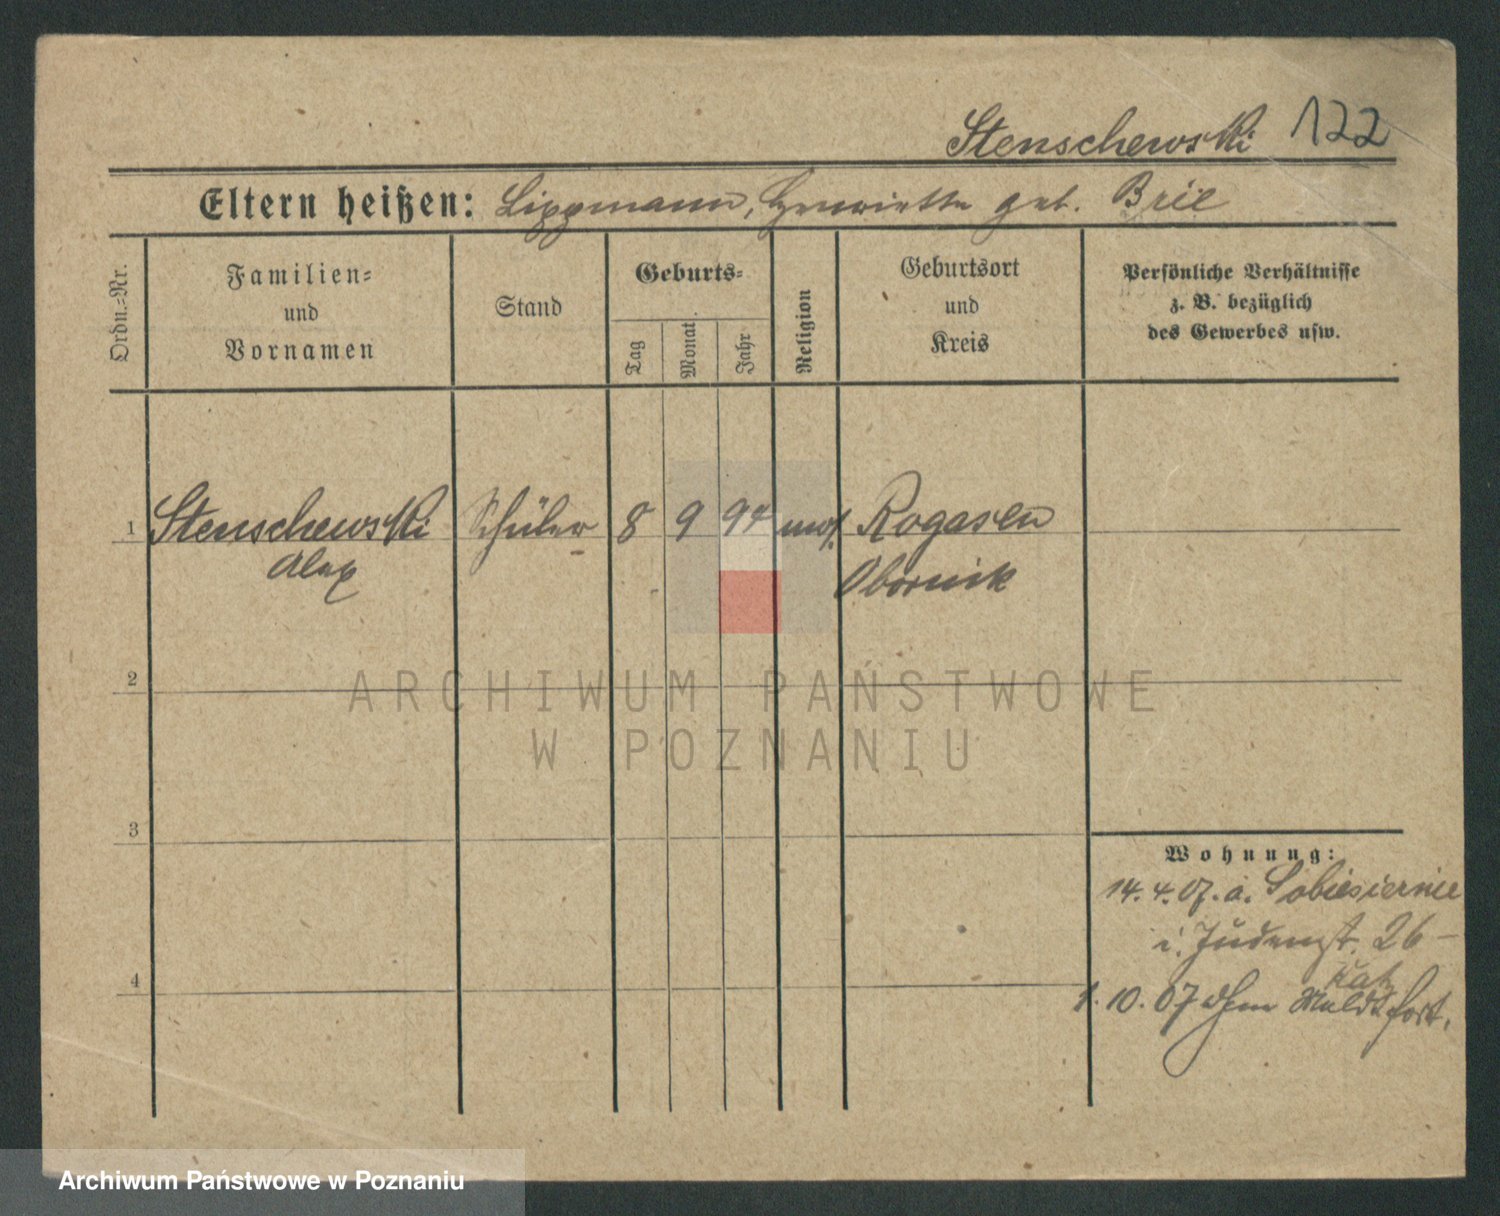 Stenschewski 122
Eltern heißen: Lippmann, Henriette geb. Bril
Ordn.-Nr.
Familien-
und
Vornamen
Stand
Geburts-
Tag
Monat
Jahr
Religion
Geburtsort
und
Kreis
Persönliche Verhältnisse
z. B. bezüglich
des Gewerbes usw.
1 Stenschewski Schüler 8 9 94 mos. Rogasen
Alex Obornik
2
ARCHIWUM PAŃSTWOWE
W POZNANIU
3
Wohnung:
14. 4. 07. a.
i. Judenst. 26
4
1. 10. 07 fort.
Archiwum Państwowe w Poznaniu